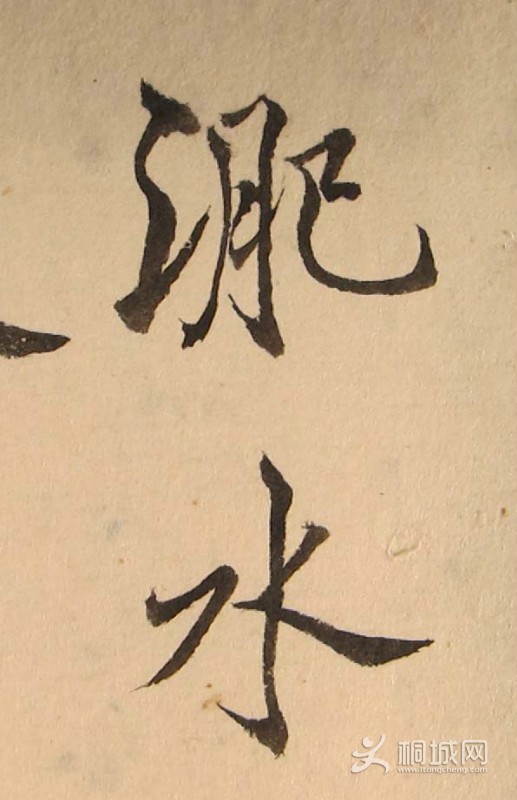 淝水
桐城网
www.itongcheng.com